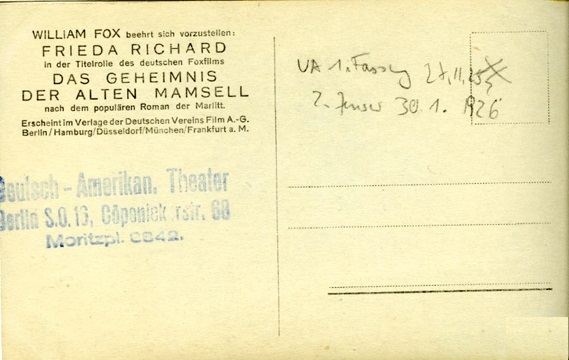 WILLIAM FOX beehrt sich vorzustellen:
FRIEDA RICHARD
in der Titelrolle des deutschen Foxfilms
DAS GEHEIMNIS
DER ALTEN MAMSELL
nach dem populären Roman der Marlitt.
Erscheint im Verlage der Deutschen Vereins Film A.-G.
Berlin/Hamburg/Düsseldorf/München/Frankfurt a. M.
Deutsch-Amerikan. Theater
Berlin S.O. 16, Cöpenickerstr. 68
Moritzpl. 6842.
VA 1. Fassung 27.11.25
2. Zensur 30 1. 1926